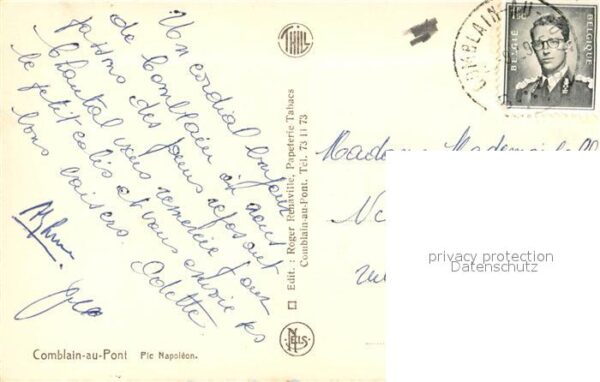 Un cordial bonjour
de Comblain où nous
passons des jours reposant
Chantal vous remercie pour
le petit colis et vous envoie ses
bons baisers.
Odette
THILL
Edit. : Roger Renaville, Papeterie Tabacs
Comblain-au-Pont. Tél. 73 11 73
NELS
Comblain-au-Pont Pic Napoléon.
COMBLAIN-AU
BELGIE BELGIQUE
Madame
privacy protection
Datenschutz